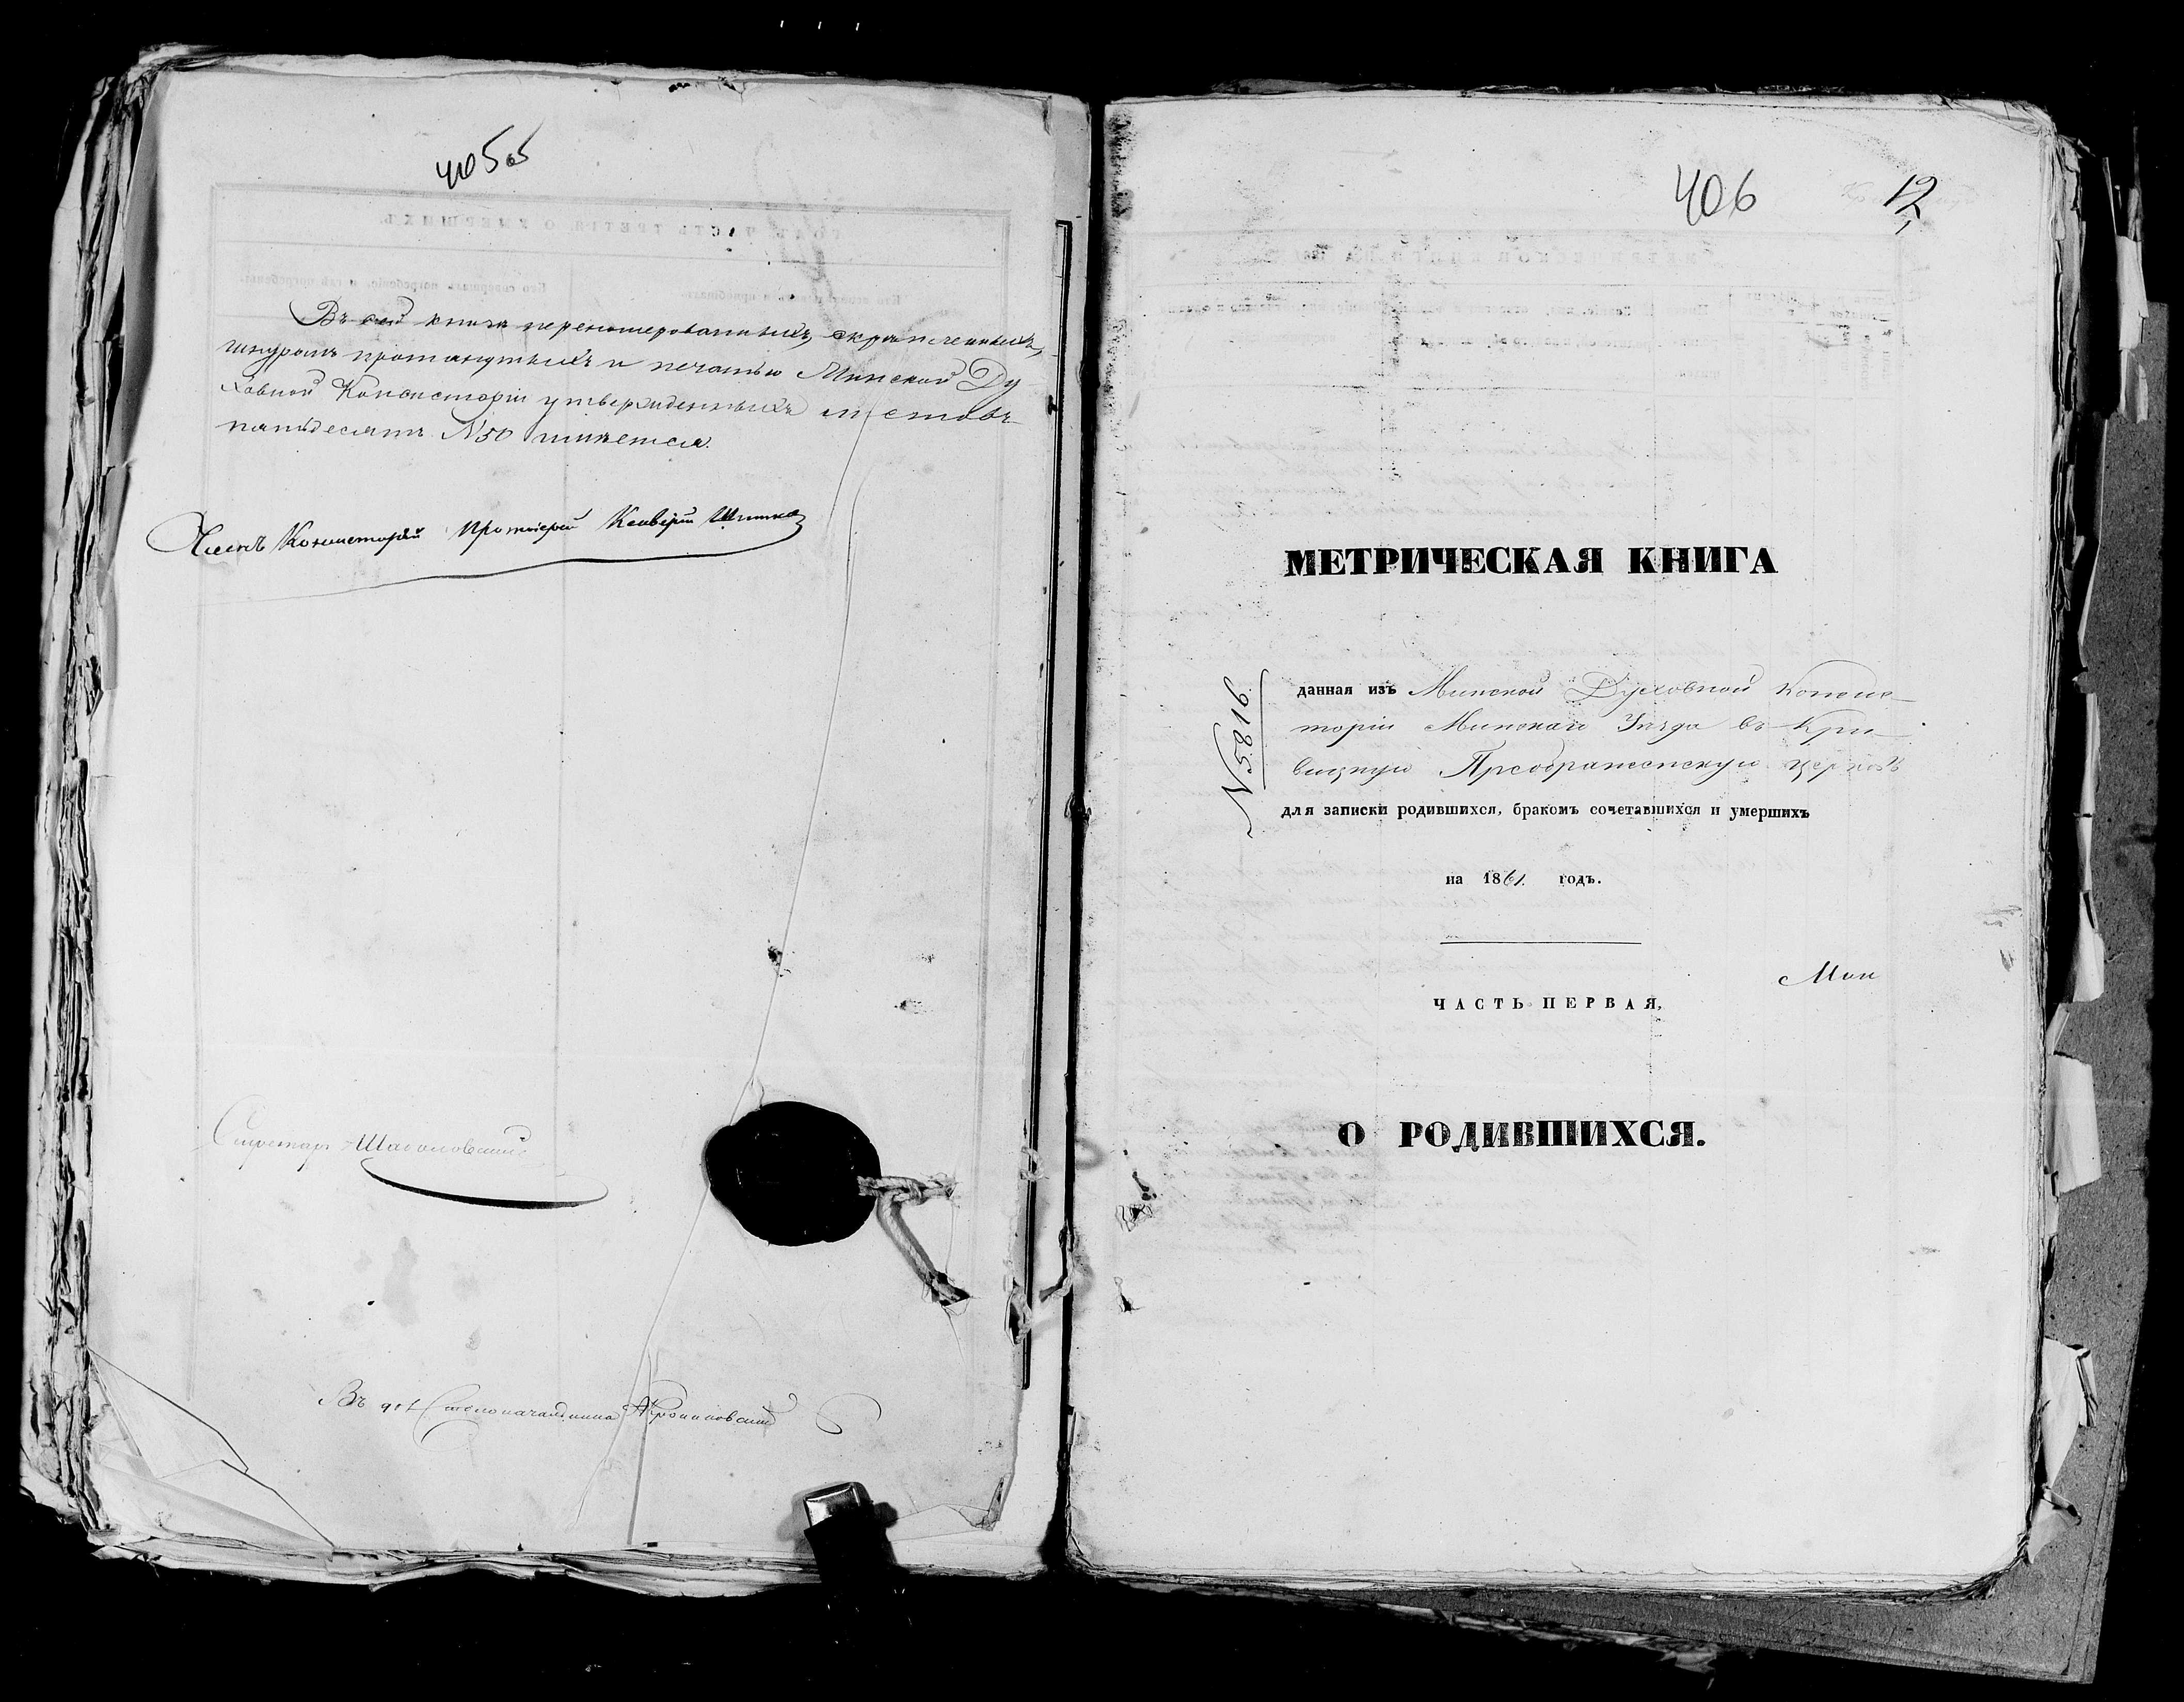 405
Въ сей книге перенумерованныхъ, скрѣпленныхъ,
шнуромъ протянутыхъ и печатью Минской Ду
ховной Консисторіи утвержденныхъ листовъ
пятьдесятъ N 50 имѣется.
Членъ Консисторіи Протоіерей
Секретарь
Столоначальника
406 12
МЕТРИЧЕСКАЯ КНИГА
N 5816
данная изъ Минской Духовной Консис-
торіи Минскаго Уѣзда въ Кри-
вицкую Преображенскую церковь
для записки родившихся, бракомъ сочетавшихся и умершихъ
на 1861 годъ.
Мин
ЧАСТЬ ПЕРВАЯ,
О РОДИВШИХСЯ.